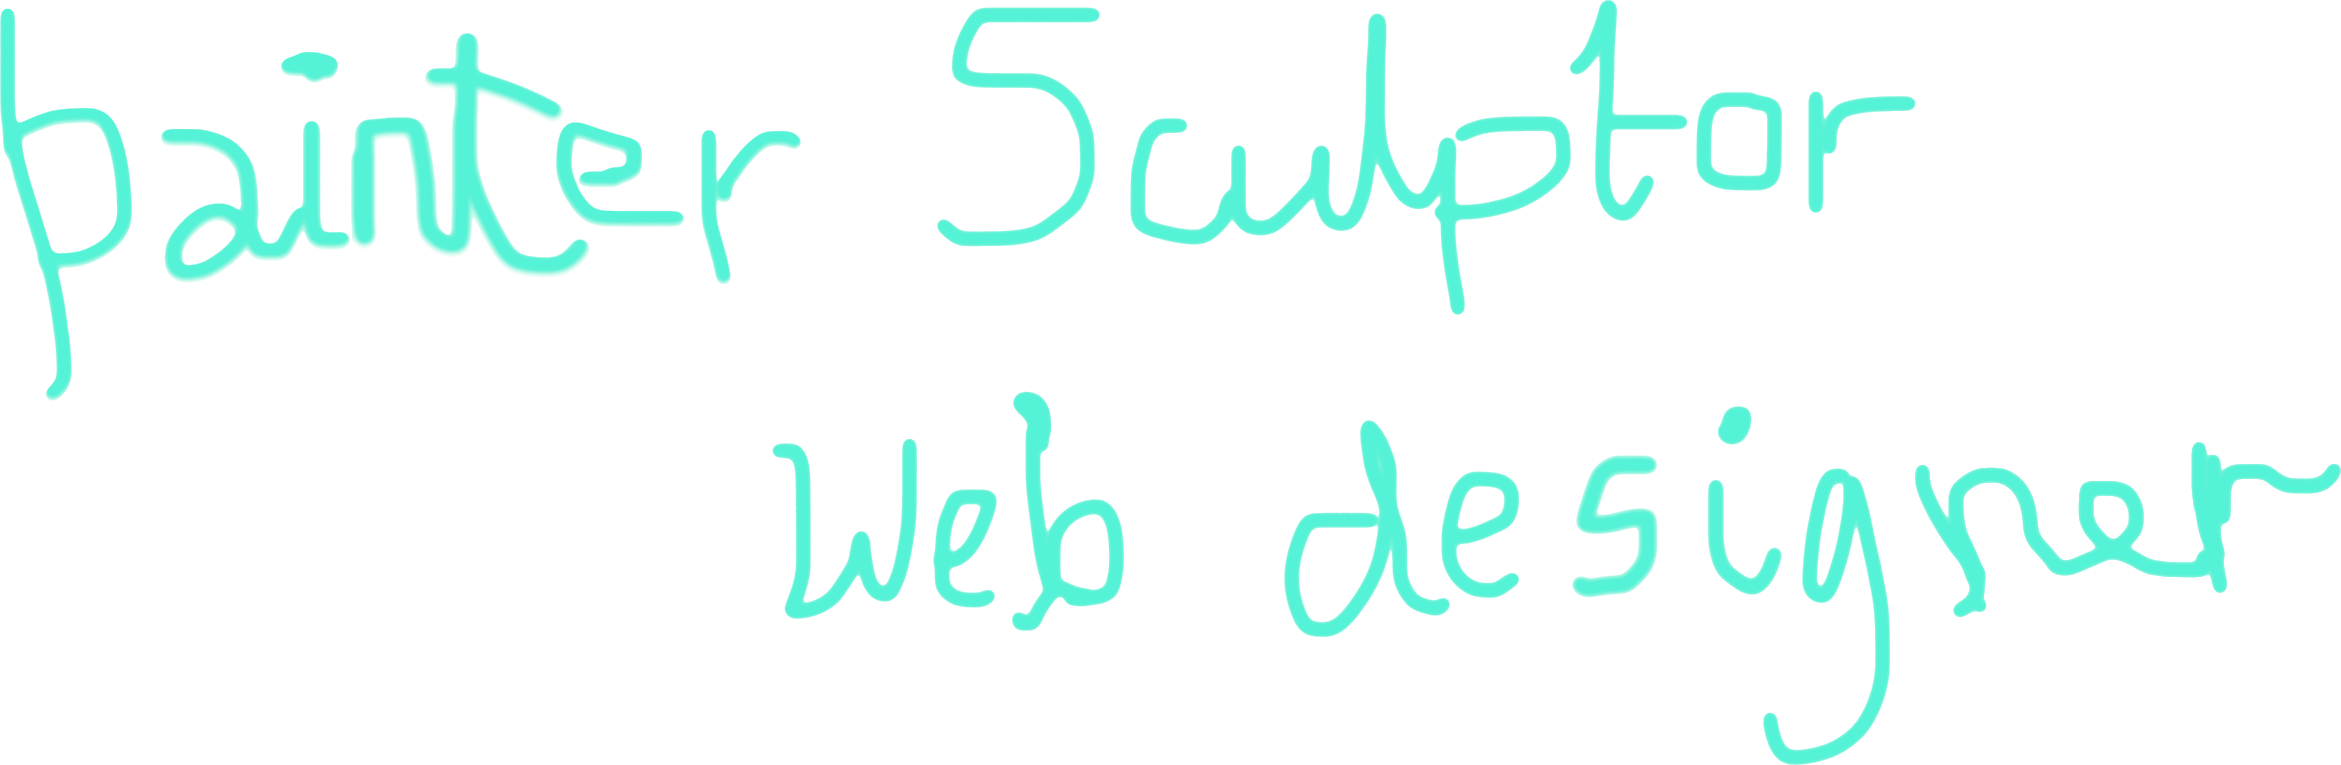 painter Sculptor
Web designer